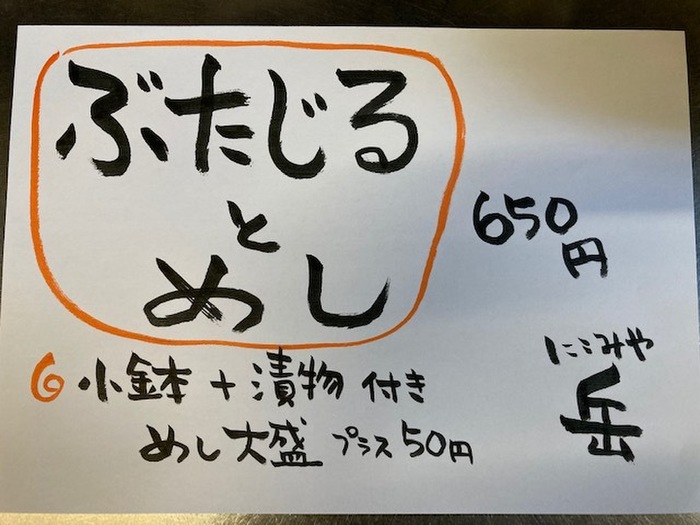 ぶたじる
と
めし
650
円
小鉢 + 漬物 付き
めし大盛 プラス50円
にこみや
岳